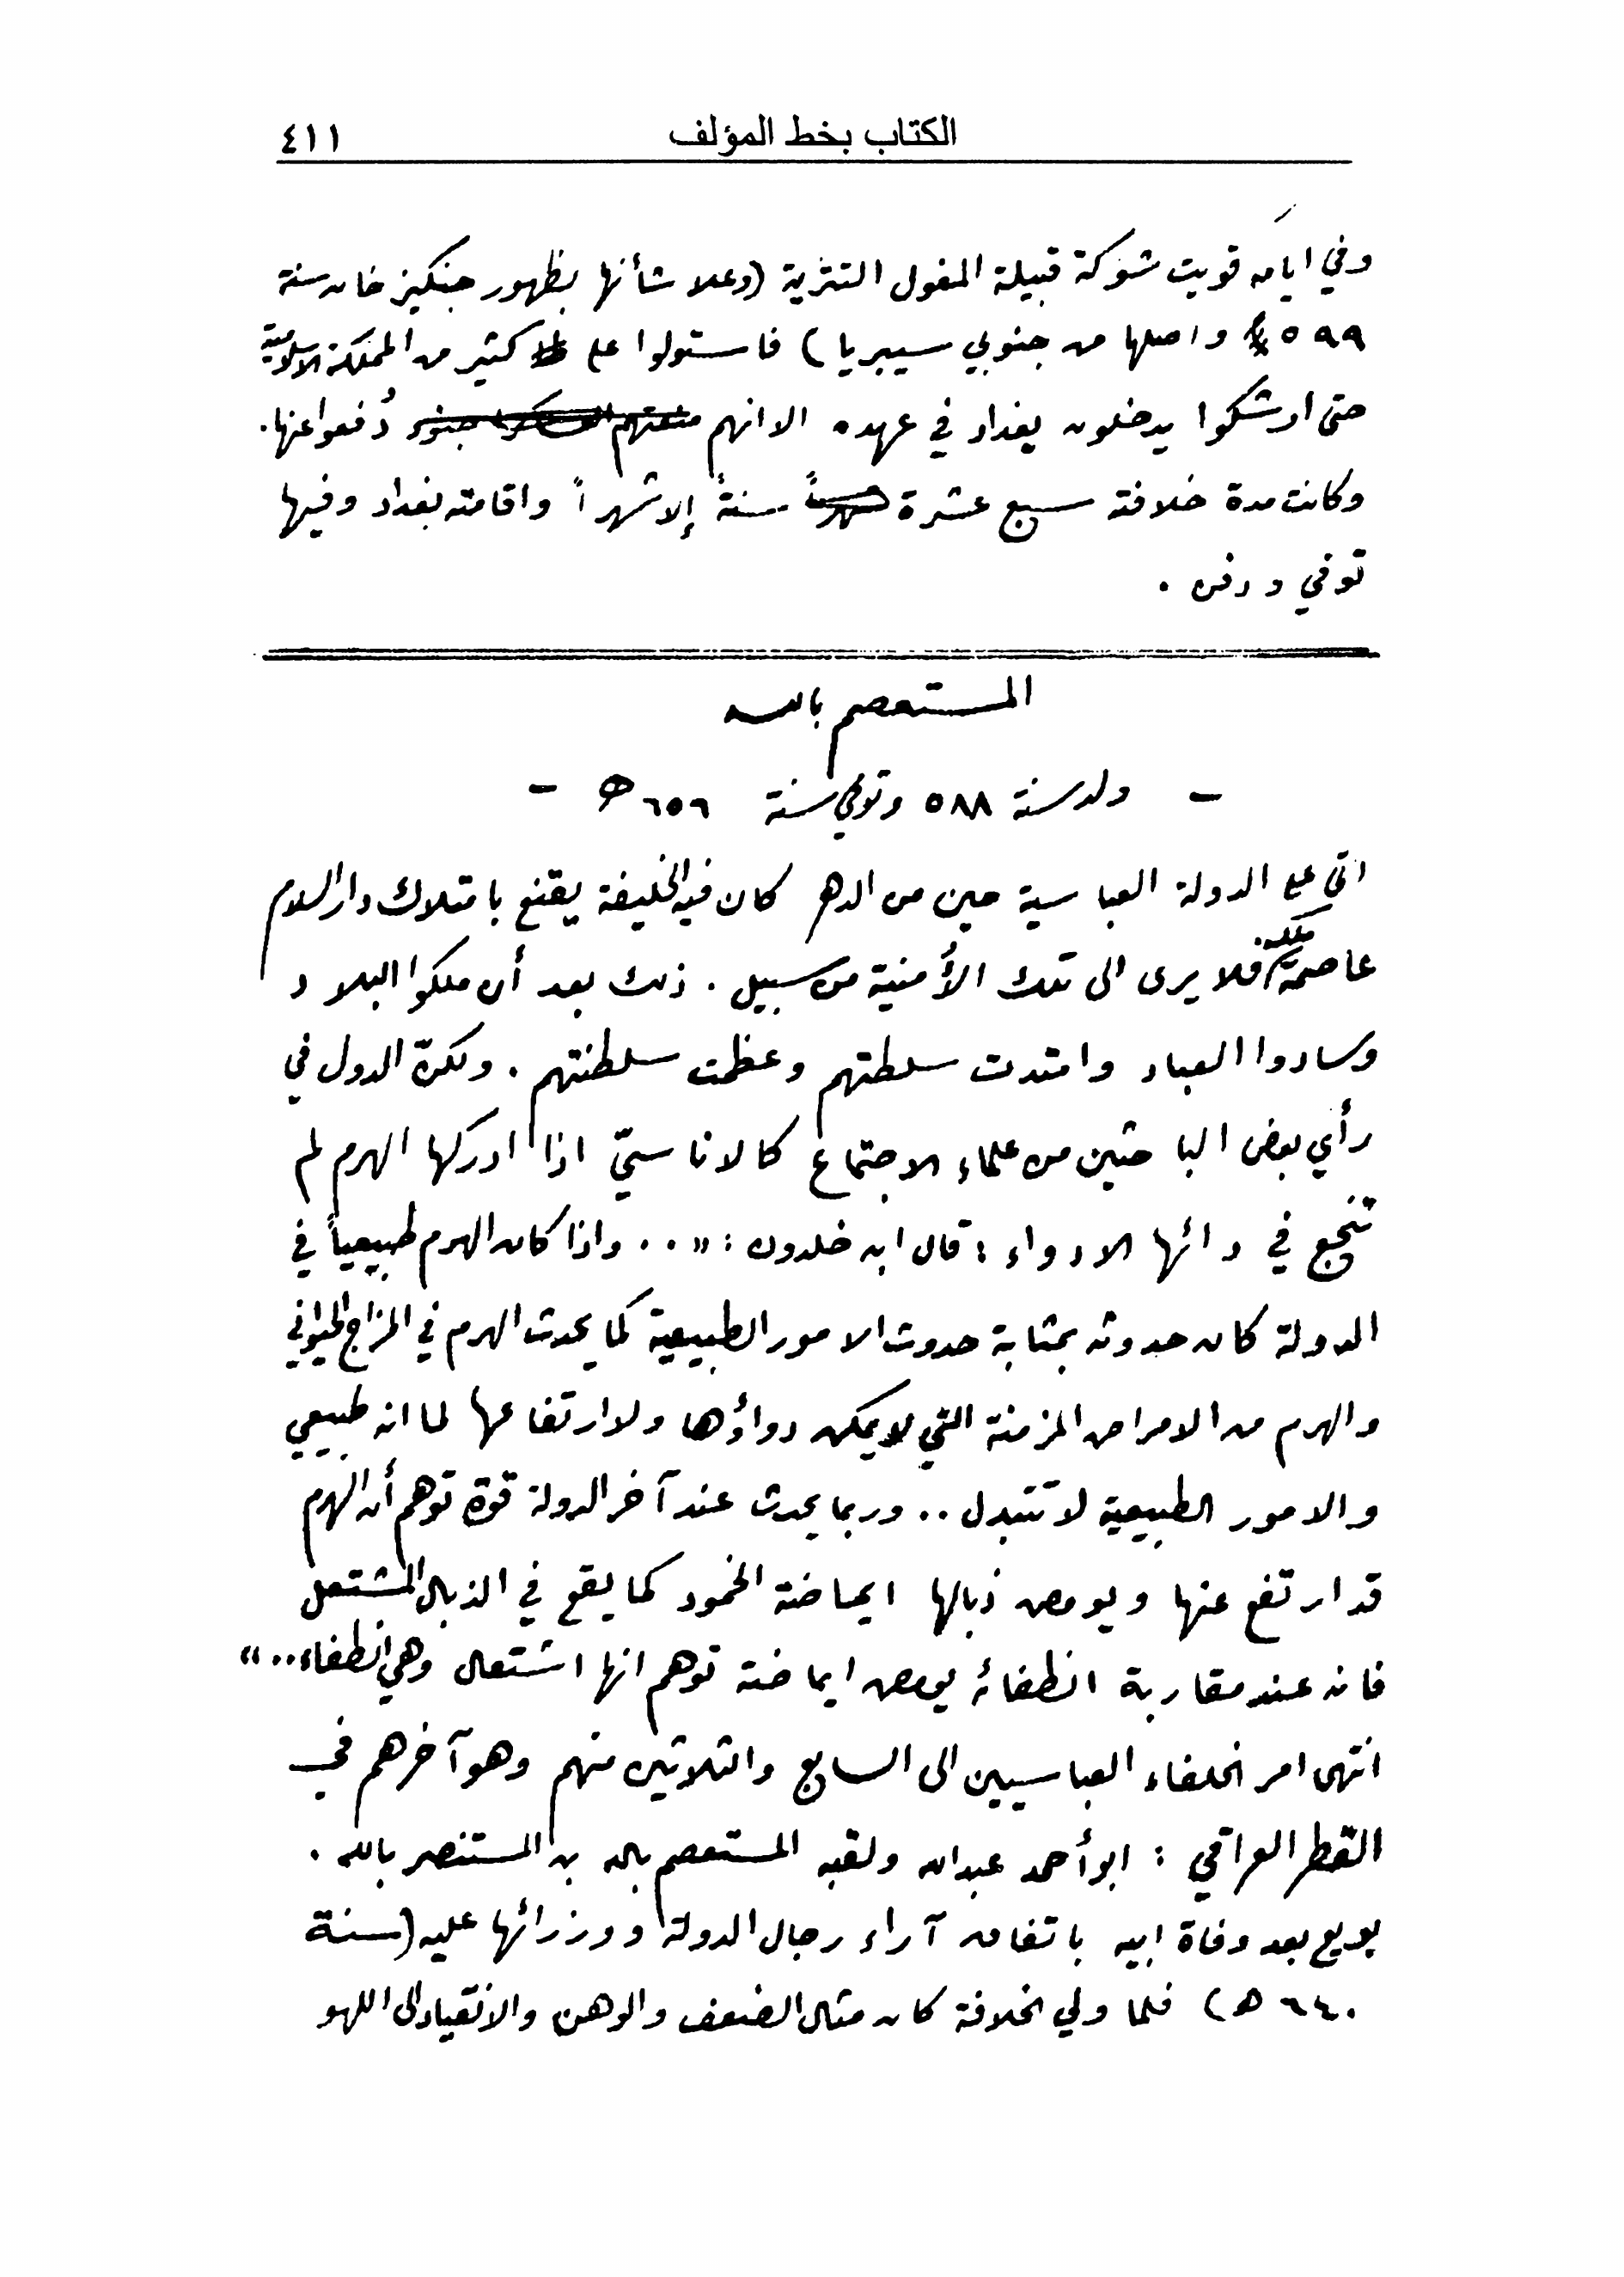 الكتاب بخط المؤلف ٤١١
وفي ايامه قويت شوكة قبيلة المغول التترية (وعلا شأنها بظهور جنكيز خان سنة
٥٩٩ واصلها من جنوبي سيبريا) فاستولوا على كثير من المملكة الاسلامية
حتى اوشكوا يدخلون بغداد في عهده الا انهم دُفعوا عنها.
وكانت مدة خلافته سبع عشرة سنةً إلا شهراً واقامته بغداد وفيها
توفي ودفن .
المستعصم بالله
- ولد سنة ٥٨٨ وتوفي سنة ٦٥٦ ه -
اتى على الدولة العباسية حين من الدهر كان فيه الخليفة يقنع بامتلاك دار السلام
عاصمة ملكه. فلا يرى الى تلك الأمنية من سبيل . ذلك بعد أن ملكوا البلاد
وسادوا العباد وامتدت سلطتهم وعظمت سلطنتهم . ولكنّ الدول في
رأي بعض الباحثين من علماء الاجتماع كالاناسيّ اذا ادركها الهرم لم
تنجع في دائها الادواء ؛ قال ابن خلدون : « .. واذا كان الهرم طبيعياً في
الدولة كان حدوثه بمثابة حدوث الامور الطبيعية كما يحدث الهرم في المزاج الحيواني
والهرم من الامراض المزمنة التي لا يمكن دواؤها ولا ارتفاعها لما انه طبيعي
والامور الطبيعية لا تتبدل .. وربما يحدث عند آخر الدولة قوة توهم أن الهرم
قد ارتفع عنها ويومض ذبالها ايماضة الخمود كما يقع في الذبال المشتعل
فانه عند مقاربة انطفائه يومض ايماضة توهم انها اشتعال وهي انطفاء.. »
انتهى امر الخلفاء العباسيين الى السابع والثلاثين منهم وهو آخرهم في
القطر العراقي : ابو أحمد عبدالله ولقبه المستعصم بالله بن المستنصر بالله .
بويع بعد وفاة ابيه باتفاق آراء رجال الدولة ووزرائها عليه (سنة
٦٤٠ ه) فلما ولي الخلافة كان مثال الضعف والوهن والانقياد الى اللهو